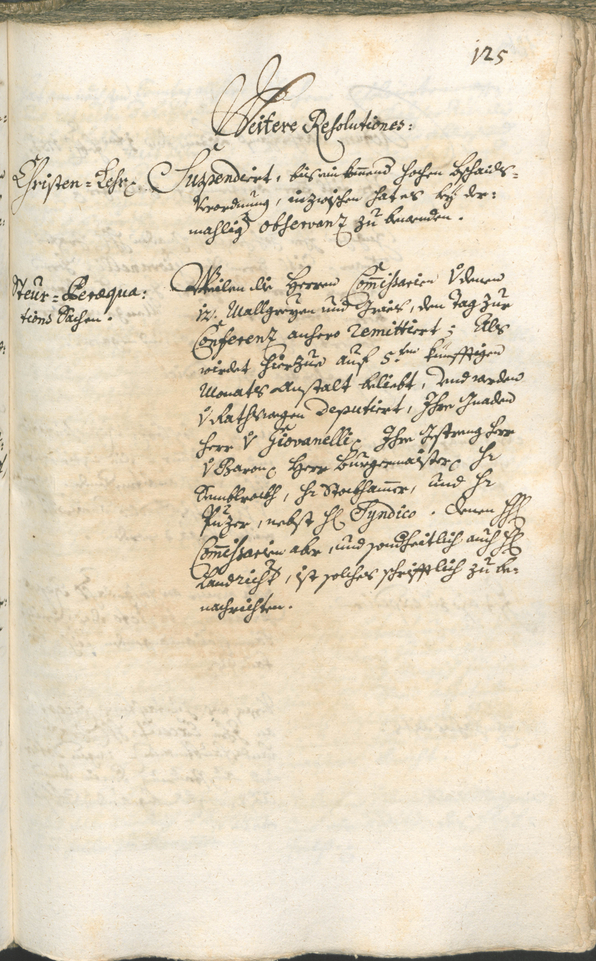 125
Weitere Resolutiones:
Christen-Lehr.
Suspendiert, bis einkomend hochen Bschaids-
Verordnung, inzwischen hat es bey der-
mahlig observanz zu bewenden.
Steur-Peræqua:
tions Sachen.
Weilen die Herren Commissarien v denen
und Gries, den Tag zur
Conferenz anhero remittiert; Als
wirdet hierzue auf 5.ten künfftigen
Monats Anstalt beliebt, und warden
v Rathswegen deputiert, Ihro Gnaden
Herr v Giovanelli, Ihr Gestreng Herr
v Baron, Herr Burgermaister, H:
H: Stockhamer, und H:
Puzer, nebst H: Syndico. Denen HH:
Commissarien aber, und sonderheitlich auch H:
Landricht:, ist solches schrifftlich zu be-
nachrichten.